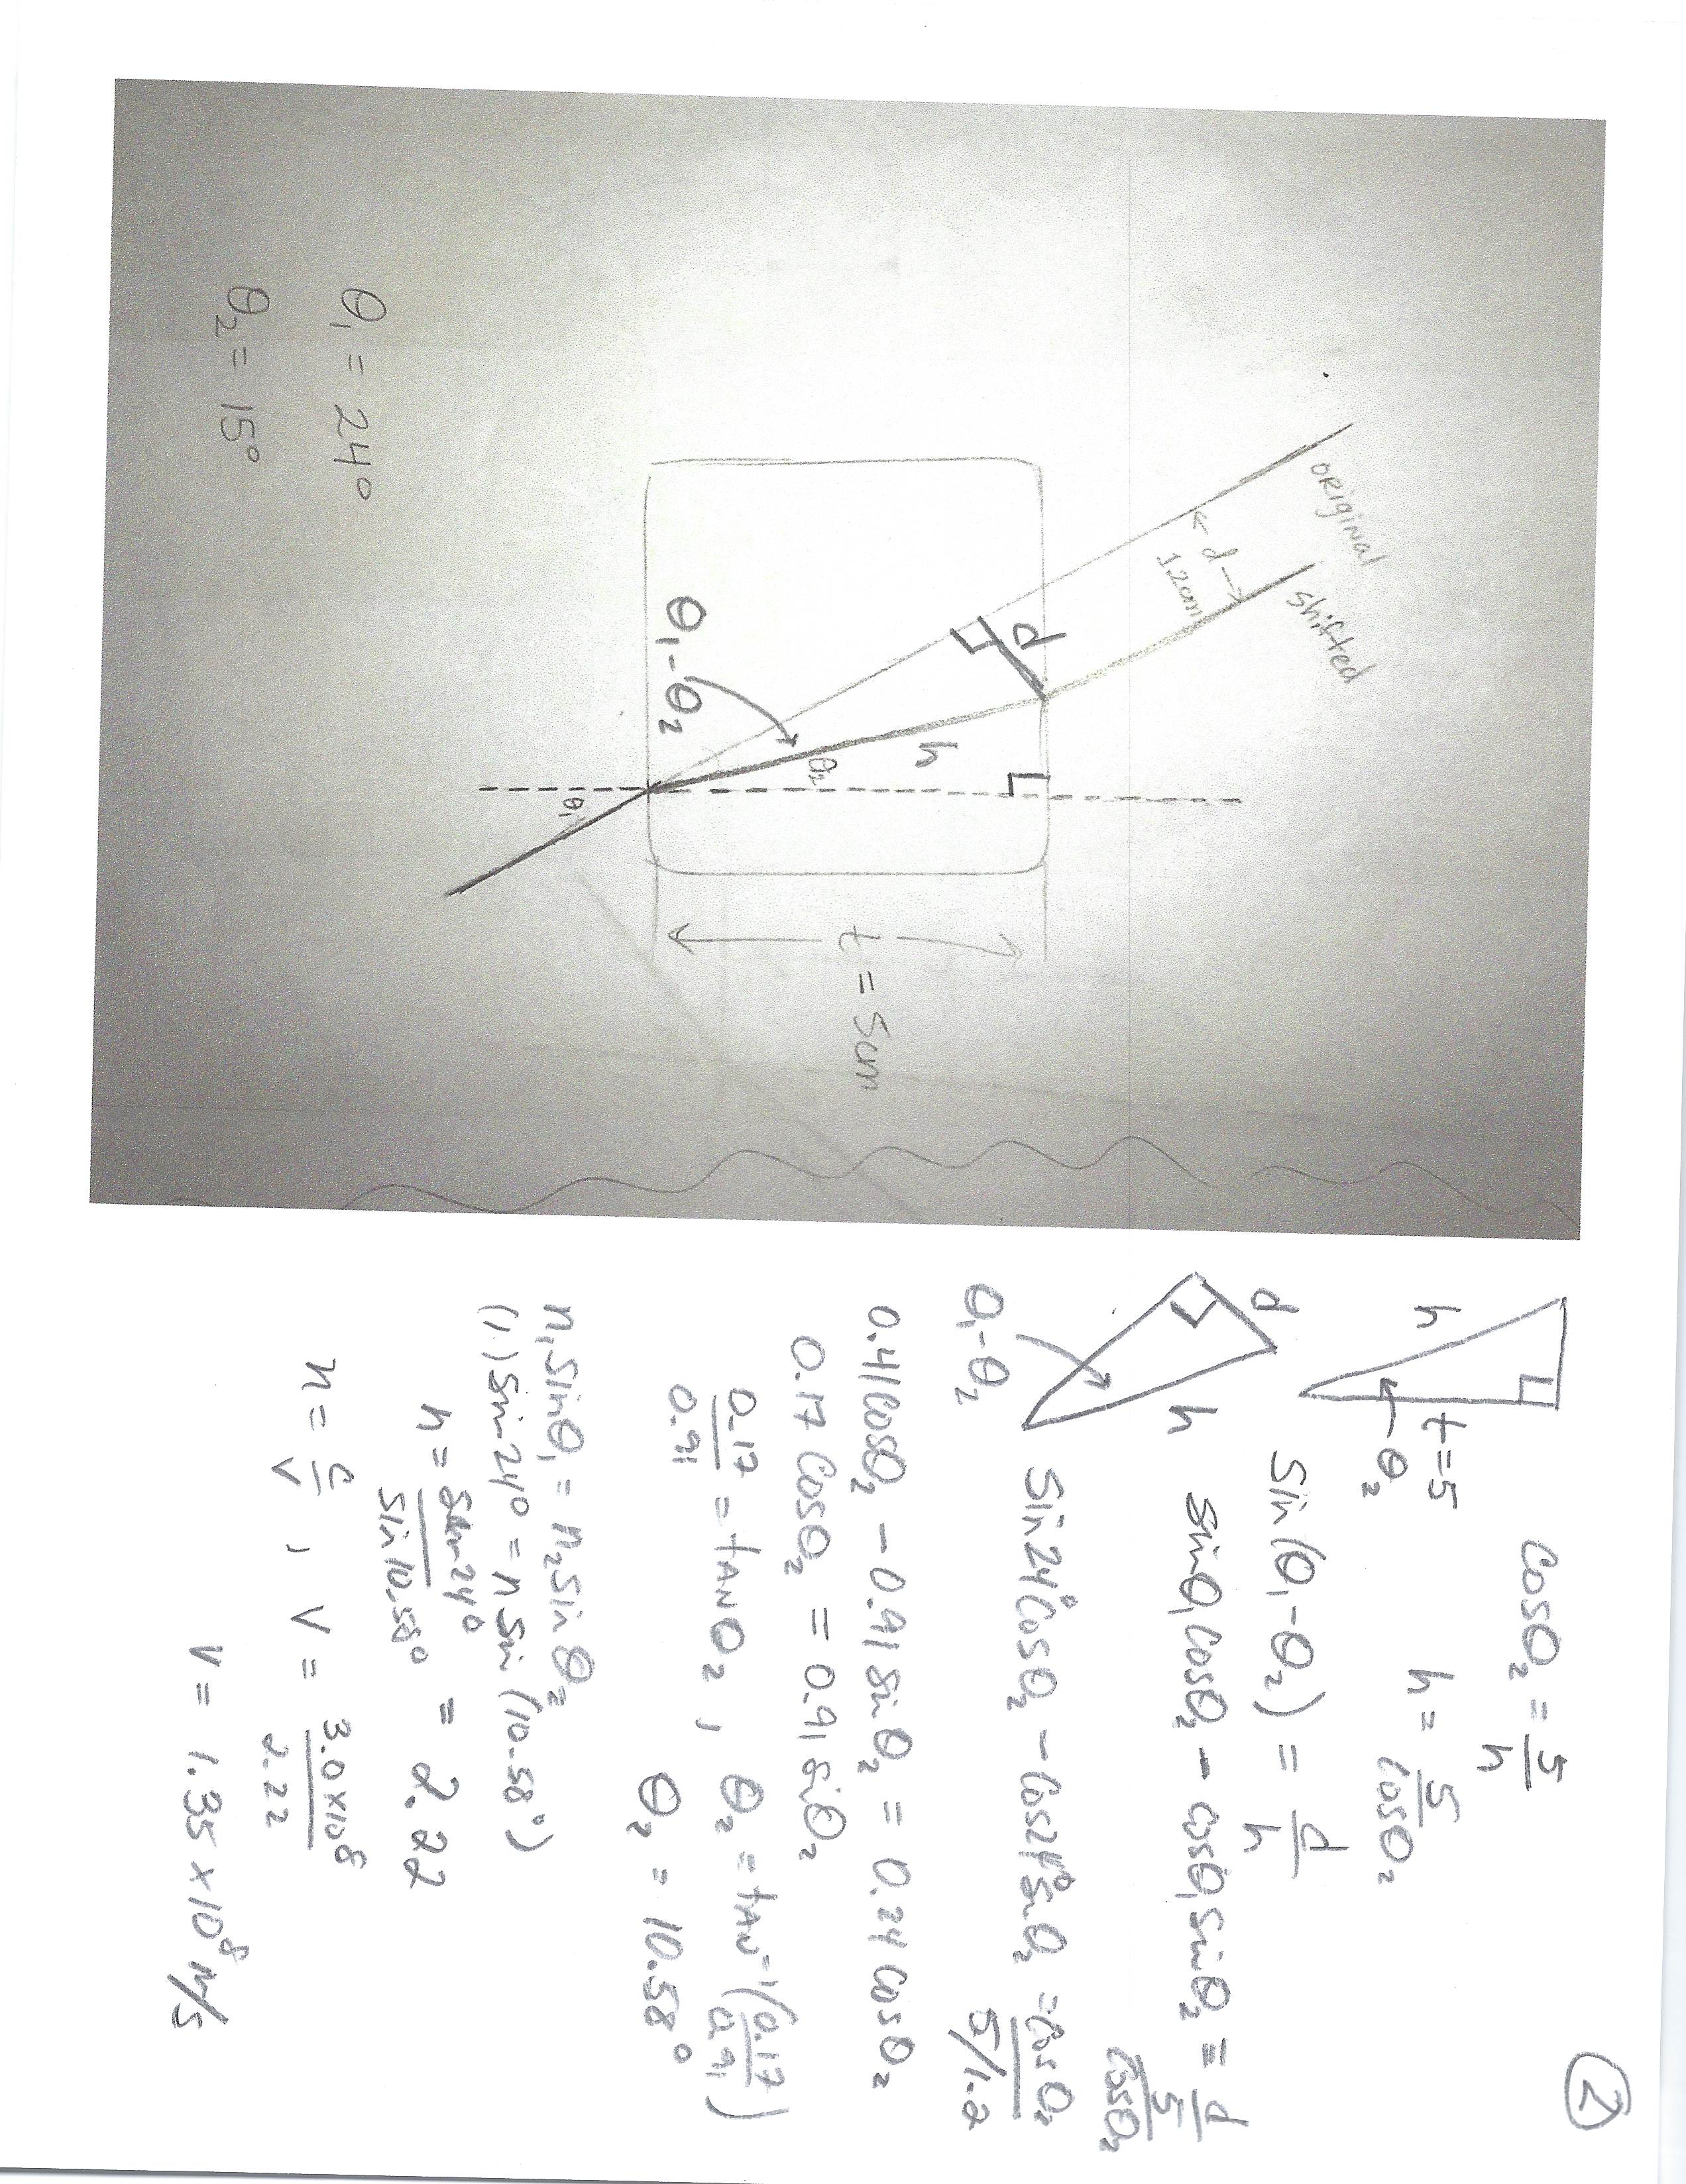 original
shifted
← d →
1.2cm
d
h
θ₁-θ₂
θ₂
θ₁
t = 5cm
θ₁ = 24°
θ₂ = 15°
2
h
t=5
θ₂
cosθ₂ = 5/h
h = 5/cosθ₂
d
h
θ₁-θ₂
Sin(θ₁-θ₂) = d/h
sinθ₁cosθ₂ - cosθ₁sinθ₂ = d/(5/cosθ₂)
Sin24°cosθ₂ - cos24°sinθ₂ = cosθ₂/(5/1.2)
0.41cosθ₂ - 0.91 sinθ₂ = 0.24 cosθ₂
0.17 cosθ₂ = 0.91 sinθ₂
0.17/0.91 = tanθ₂, θ₂ = tan⁻¹(0.17/0.91)
θ₂ = 10.58°
n₁sinθ₁ = n₂sinθ₂
(1)Sin24° = n Sin(10.58°)
n = Sin24°/Sin10.58° = 2.22
n = c/v , v = 3.0x10⁸/2.22
v = 1.35 x 10⁸ m/s